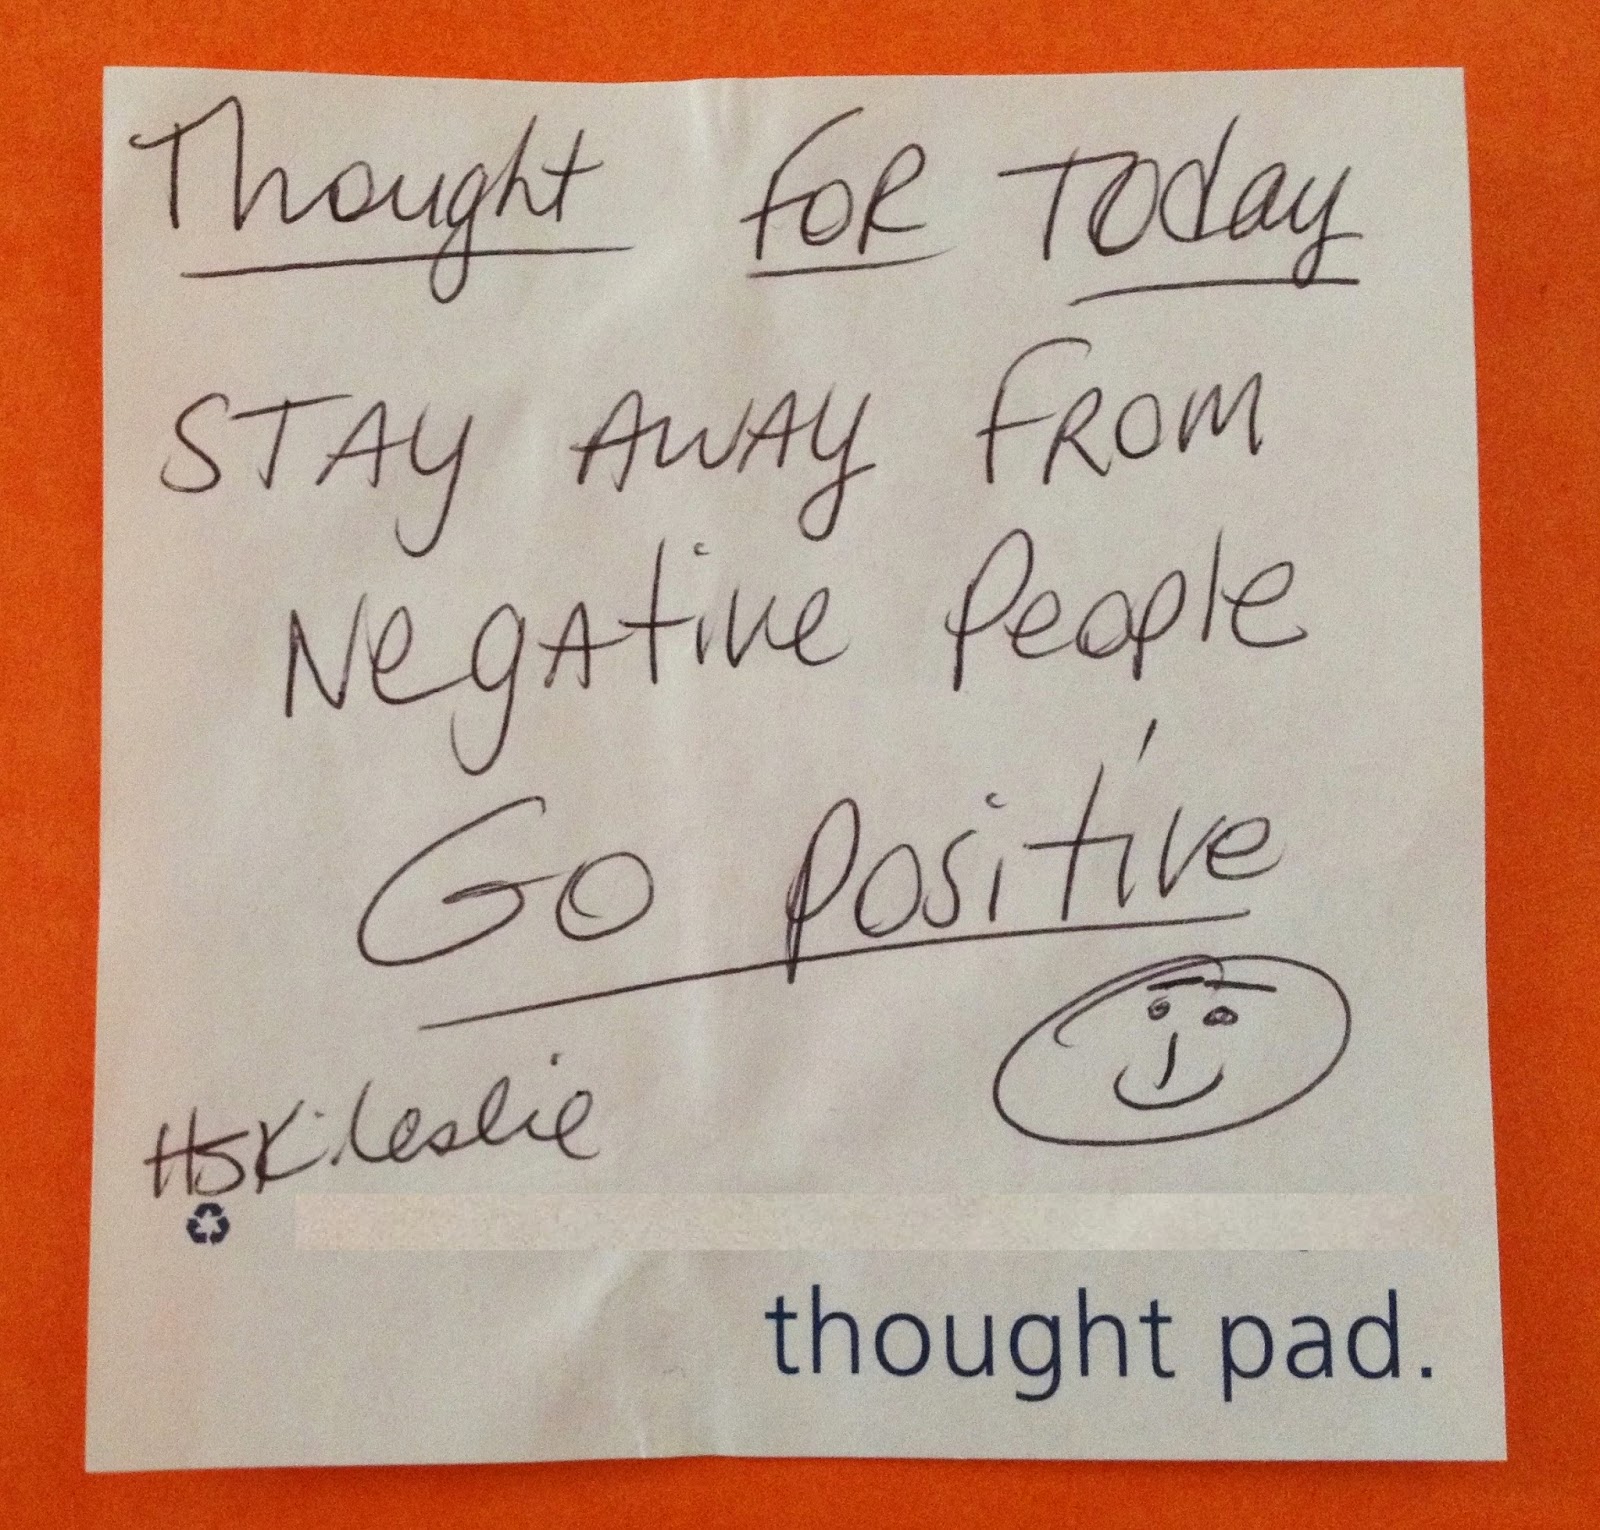 Thought FOR Today
STAY AWAY FROM
NegAtive People
GO Positive
HSK: Leslie
thought pad.